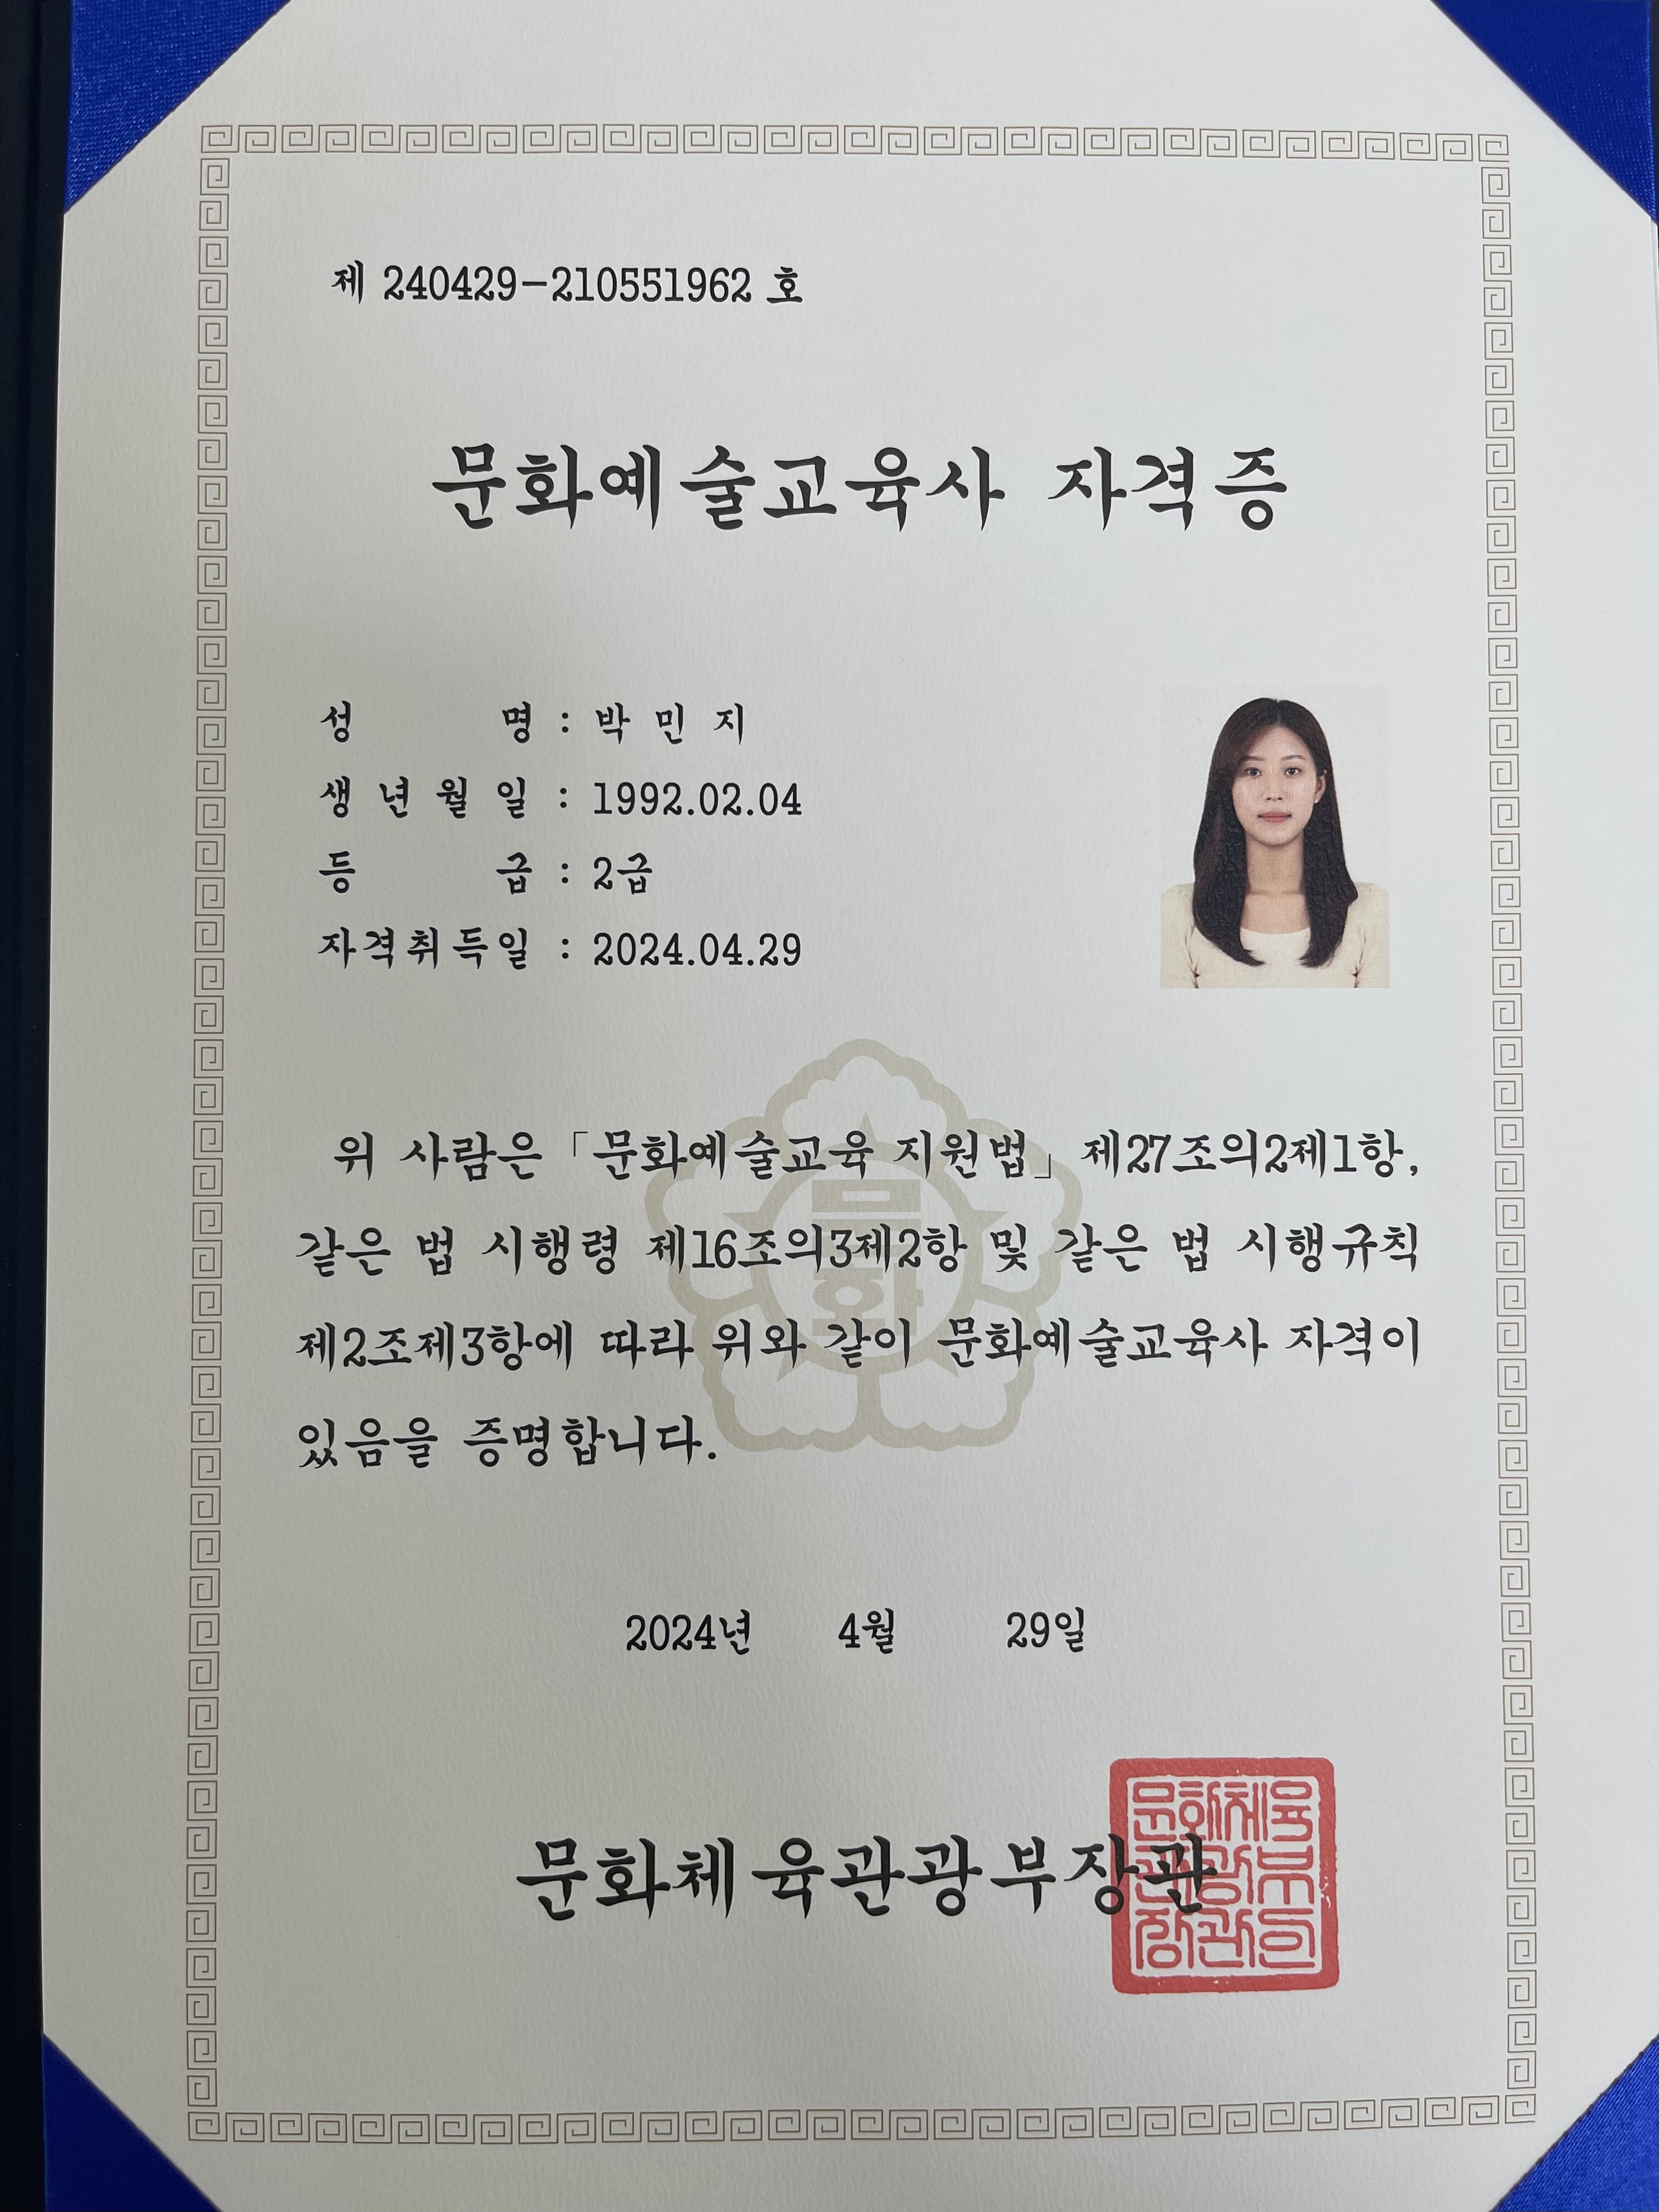 제 240429-210551962 호
문화예술교육사 자격증
성 명 : 박 민 지
생 년 월 일 : 1992.02.04
등 급 : 2급
자격취득일 : 2024.04.29
위 사람은 「문화예술교육 지원법」 제27조의2제1항,
같은 법 시행령 제16조의3제2항 및 같은 법 시행규칙
제2조제3항에 따라 위와 같이 문화예술교육사 자격이
있음을 증명합니다.
문화
2024년 4월 29일
문화체육관광부장관
문화체육
관광부
장관인